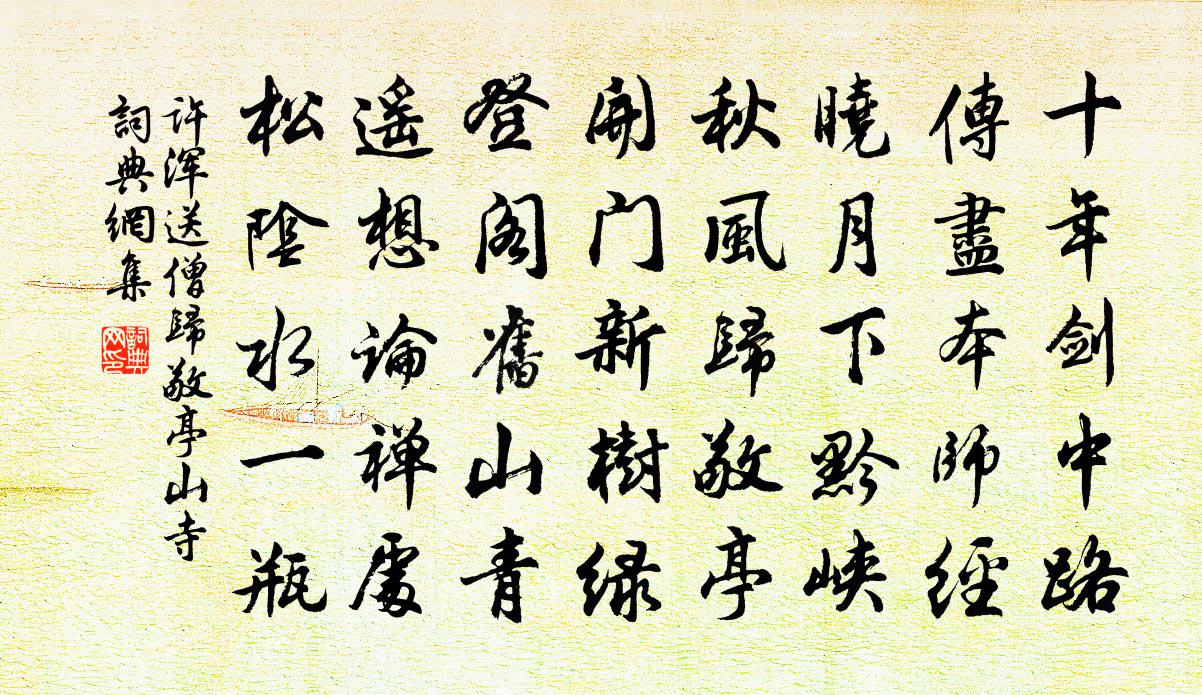 十年剑中路
傳盡本師經
曉月下黔峡
秋風歸敬亭
開门新樹绿
登阁舊山青
遥想論禅處
松陰水一瓶
许浑送僧歸敬亭山寺
詞典網集
詞典
网印